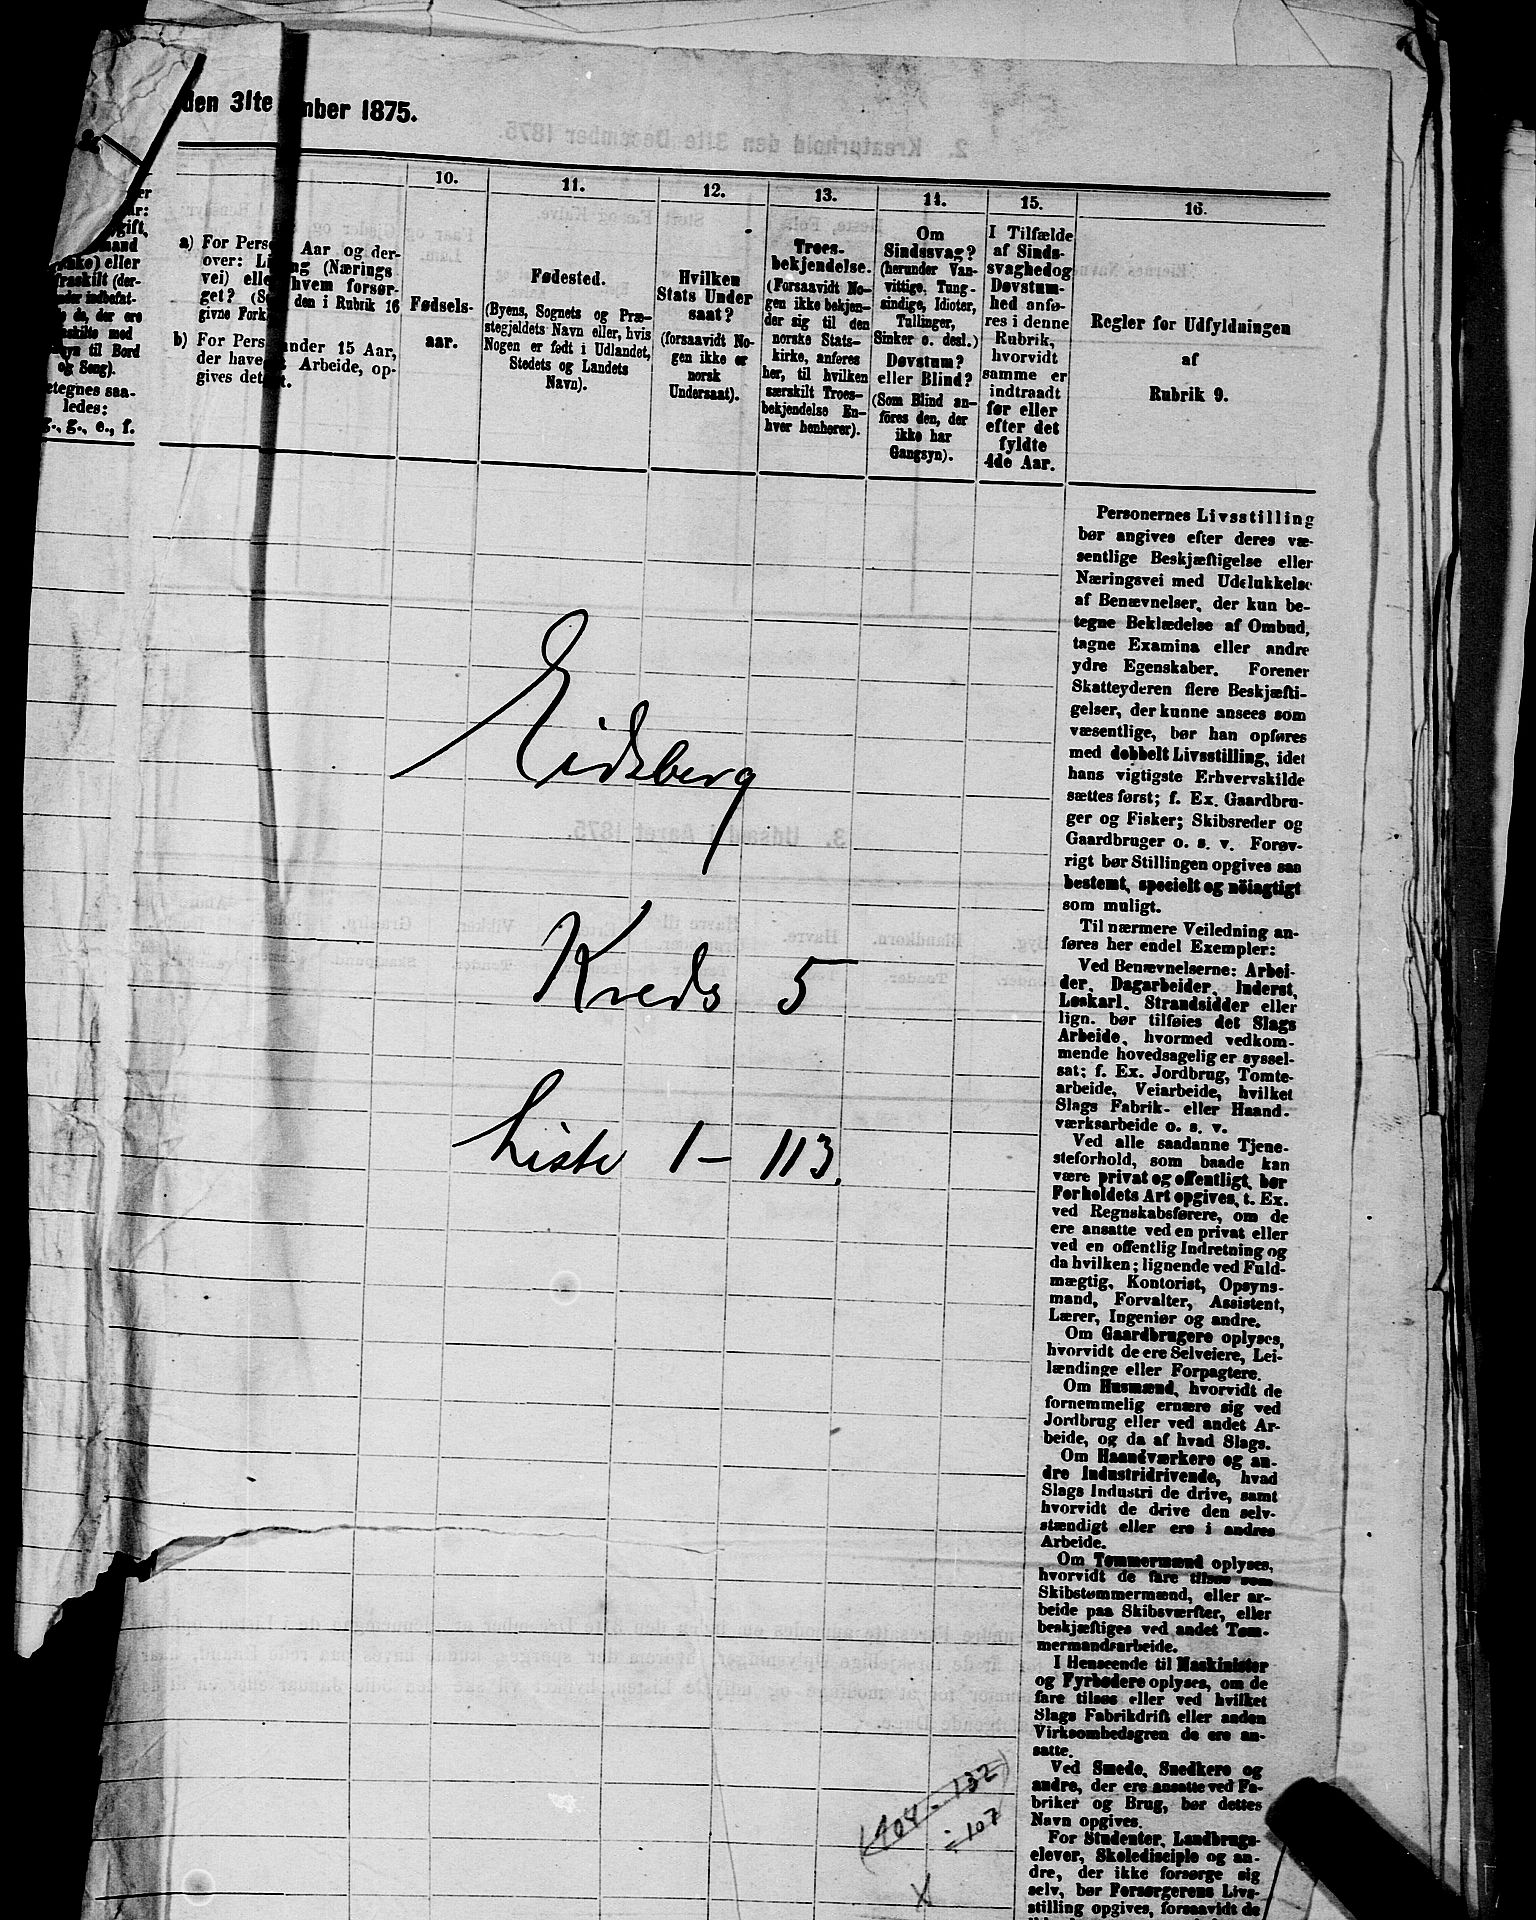 den 31te mber 1875.
10.
11.
12.
13.
14.
15.
16.
mand
eller
raskilt (der-
da, der ere
med
til Bord
og Seng).
etegnes saa-
ledes:
g., g., e., f.
a) For Pers Aar og der-
over: Li ng (Nærings
vei) elle hvem forsør-
get? (S den i Rubrik 16
givne Fork
b) For Pers under 15 Aar,
der have Arbeide, op-
gives det t.
Fødsels-
aar.
Fødested.
(Byens, Sognets og Præ-
stegjeldets Navn eller, hvis
Nogen er født i Udlandet,
Stedets og Landets
Navn).
Hvilken
Stats Under
saat?
(forsaavidt No-
gen ikke er
norsk
Undersaat).
Troes-
bekjendelse.
(Forsaavidt No-
gen ikke bekjen-
der sig til den
norske Stats-
kirke, anføres
her, til hvilken
særskilt Troes-
bekjendelse En-
hver henhører).
Om
Sindssvag?
(herunder Van-
vittige, Tung-
sindige, Idioter,
Tullinger,
Sinker o. desl.)
Døvstum?
eller Blind?
(Som Blind an-
føres den, der
ikke har
Gangsyn).
I Tilfælde
af Sinds-
svaghed og
Døvstum-
hed anfø-
res i denne
Rubrik,
hvorvidt
samme er
indtraadt
før eller
efter det
fyldte
4de Aar.
Regler for Udfyldningen
af
Rubrik 9.
Personernes Livsstilling
bør angives efter deres væ-
sentlige Beskjæftigelse eller
Næringsvei med Udelukkelse
af Benævnelser, der kun be-
tegne Beklædelse af Ombud,
tagne Examina eller andre
ydre Egenskaber. Forener
Skatteyderen flere Beskjæfti-
gelser, der kunne ansees som
væsentlige, bør han opføres
med dobbelt Livsstilling, idet
hans vigtigste Erhvervskilde
sættes først; f. Ex. Gaardbru-
ger og Fisker; Skibsreder og
Gaardbruger o. s. v. Forøv-
rigt bør Stillingen opgives saa
bestemt, specielt og nöiagtigt
som muligt.
Til nærmere Veiledning an-
føres her endel Exempler:
Ved Benævnelserne: Arbei-
der, Dagarbeider, Inderst,
Løskarl, Strandsidder eller
lign. bør tilføies det Slags
Arbeide, hvormed vedkom-
mende hovedsagelig er syssel-
sat; f. Ex. Jordbrug, Tomte-
arbeide, Veiarbeide, hvilket
Slags Fabrik- eller Haand-
værksarbeide o. s. v.
Ved alle saadanne Tjene-
steforhold, som baade kan
være privat og offentligt, bør
Forholdets Art opgives, t. Ex.
ved Regnskabsførere, om de
ere ansatte ved en privat eller
ved en offentlig Indretning og
da hvilken; lignende ved Fuld-
mægtig, Kontorist, Opsyns-
mand, Forvalter, Assistent,
Lærer, Ingeniør og andre.
Om Gaardbrugere oplyses,
hvorvidt de ere Selveiere, Lei-
lændinge eller Forpagtere.
Om Husmænd, hvorvidt de
fornemmelig ernære sig ved
Jordbrug eller ved andet Ar-
beide, og da af hvad Slags.
Om Haandværkere og an-
dre Industridrivende, hvad
Slags Industri de drive, samt
hvorvidt de drive den selv-
stændigt eller ere i andres
Arbeide.
Om Tømmermænd oplyses,
hvorvidt de fare tilsøs som
Skibstømmermænd, eller ar-
beide paa Skibsværfter, eller
beskjæftiges ved andet Tøm-
mermandsarbeide.
I Henseende til Maskinister
og Fyrbødere oplyses, om de
fare tilsøs eller ved hvilket
Slags Fabrikdrift eller anden
Virksomhedsgren de ere an-
satte.
Ved Smede, Snedkere og
andre, der ere ansatte ved Fa-
briker og Brug, bør dettes
Navn opgives.
For Studenter, Landbrugs-
elever, Skoledisciple og an-
dre, der ikke forsørge sig
selv, bør Forsørgerens Livs-
stilling opgives, forsaavidt de
Eidsberg
Kreds 5
Liste 1 - 113.
(104 - 132)
÷ 107
X